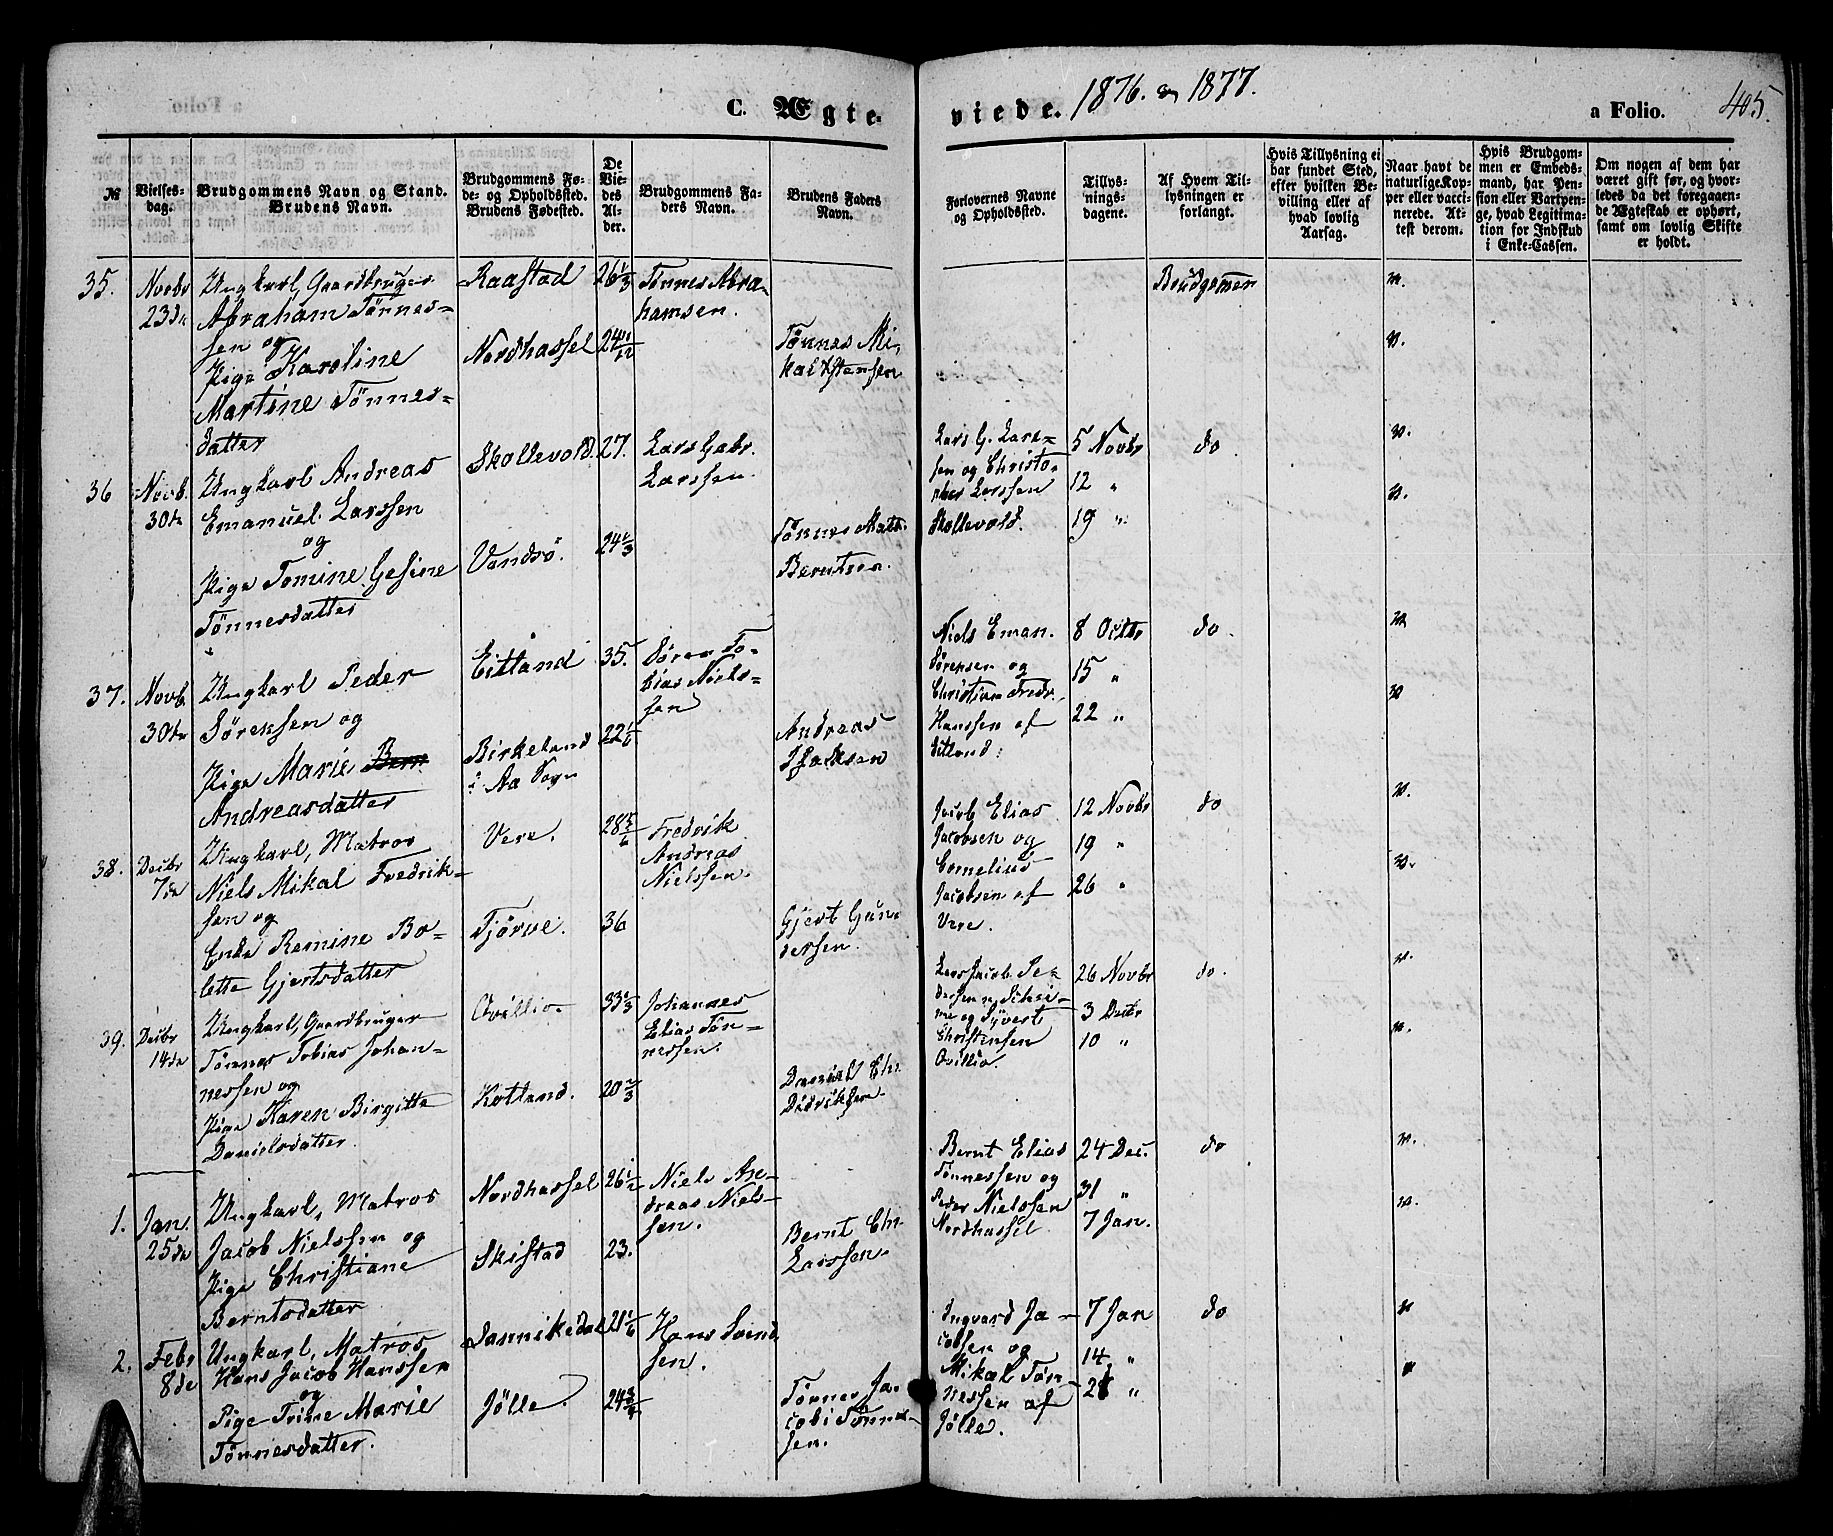 C. Ægte-
viede. 1876. og 1877.
a Folio. 405.
№
Vielses-
dag.
Brudgommens Navn og Stand.
Brudens Navn.
Brudgommens Fø-
de- og Opholdssted.
Brudens Fødested.
De
Vie-
des
Al-
der.
Brudgommens Fa-
ders Navn.
Brudens Faders
Navn.
Forlovernes Navne
og Opholdssted.
Tillys-
nings-
dagene.
Af Hvem Til-
lysningen er
forlangt.
Hvis Tillysning ei
har fundet Sted,
efter hvilken Be-
villing eller af
hvad lovlig
Aarsag.
Naar havt de
naturlige Kop-
per eller vacci-
nerede. At-
test derom.
Hvis Brudgom-
men er Embeds-
mand, har Pen-
sion eller Vartpen-
ge, hvad Legitima-
tion for Indskud
i Enke-Cassen.
Om nogen af dem har
været gift før, og hvor-
ledes da det foregaaen-
de Ægteskab er ophørt,
samt om lovlig Skifte
er holdt.
35. Novbr
23de
Ungkarl, Gaardbruger
Abraham Tønnes-
sen og
Pige Karoline
Martine Tønnes-
datter
Raastad
Nordhassel
26 1/3
24 1/12
Tønnes Abra-
hamsen.
Tønnes Mi-
kal Stensen
Brudgommen
36 Novb.
30te
Ungkarl Andreas
Emanuel Larssen
og
Pige Tomine Gesine
Tønnesdatter
Skollevold.
Vandsø.
27.
24 1/3
Lars Gabr.
Larssen.
Tønnes Math.
Berntsen.
Lars G. Lars-
sen og Christo-
pher Larssen
Skollevold.
5 Novbr
12 "
19 "
do
37. Novb.
30te
Ungkarl Peder
Sørensen og
Pige Marie Bern
Andreasdatter
Eitland
Birkeland
i Aa Sogn
35.
22 1/6
Søren To-
bias Niels-
sen
Andreas
Isaksen
Niels Eman.
Sørensen og
Christian Fredr.
Hanssen af
Eitland.
8 Octbr
15 "
22 "
do.
38. Decbr
7de
Ungkarl, Matros
Niels Mikal Fredrik-
sen og
Enke Remine Bo-
lette Gjertsdatter
Vere.
Tjørve.
28 5/6
36
Fredrik
Andreas
Nielssen.
Gjert Gun-
dersen.
Jacob Elias
Jacobsen og
Cornelius
Jacobsen af
Vere.
12 Novbr
19 "
26 "
do
39. Decbr
14de
Ungkarl, Gaardbruger
Tønnes Tobias Johan-
nessen og
Pige Karen Birgitte
Danielsdatter.
Qvillio
Kotland.
33 1/3
20 2/3
Johannes
Elias Tøn-
nessen.
Daniel Chr.
Didriksen.
Lars Jacob Pe-
me og Syvert
Christensen
Qvillio.
26 Novbr
3 Decbr
10 "
do.
1. Jan.
25de
Ungkarl, Matros
Jacob Nielssen og
Pige Christiane
Berntsdatter
Nordhassel
Skistad
26 1/2
23.
Niels An-
dreas Niels-
sen.
Bernt Chr.
Larssen.
Bernt Elias
Tønnessen og
Peder Nielssen
Nordhassel
24 Dec.
31 "
7 Jan.
do
2. Febr
8de
Ungkarl, Matros
Hans Jacob Hanssen
og
Pige Trine Marie
Tønnesdatter.
Jannikedal
Jølle.
21 1/6
24 3/4
Hans Svend-
sen.
Tønnes Ja-
cobi Tønnes-
sen.
Ingvard Ja-
cobsen og
Mikal Tøn-
nessen af
Jølle.
7 Jan
14 "
21 "
do